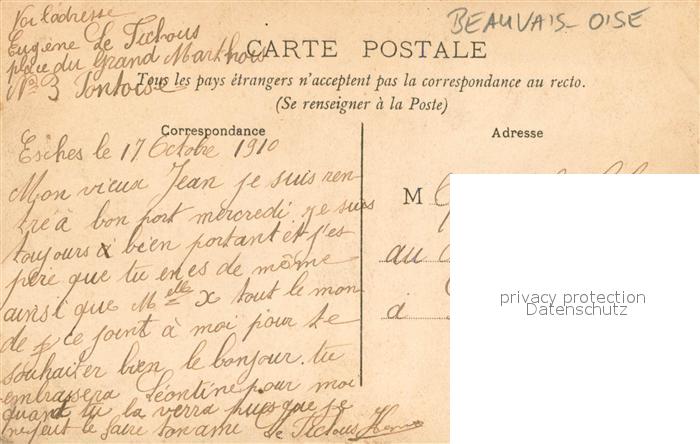 Voi l'adresse
Eugène Le Tichous
place du Grand Marthois
No 3 Pontoise
BEAUVAIS - OISE
CARTE POSTALE
Tous les pays étrangers n'acceptent pas la correspondance au recto.
(Se renseigner à la Poste)
Correspondance
Adresse
Esches le 17 Octobre 1910
Mon vieux Jean je suis ren
tré à bon port mercredi, je suis
toujours à bien portant et j'es
père que tu en es de même
ainsi que Melle x tout le mon
de se joint à moi pour te
souhaiter bien le bonjour. tu
embrassera Léontine pour moi
quand tu la verra puisque je
ne peut le faire ton ami Le Tichous
M
au
à
privacy protection
Datenschutz